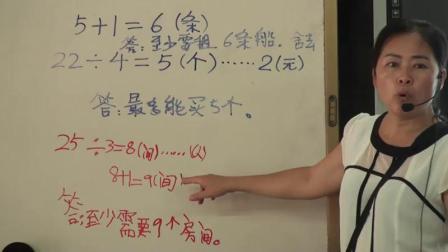 5+1=6 (条)
答:至少需租6条船。舍去
22÷4=5(个)……2(元)
答:最多能买5个。
25÷3=8(间)……1(人)
8+1=9(间)
答:至少需要9个房间。